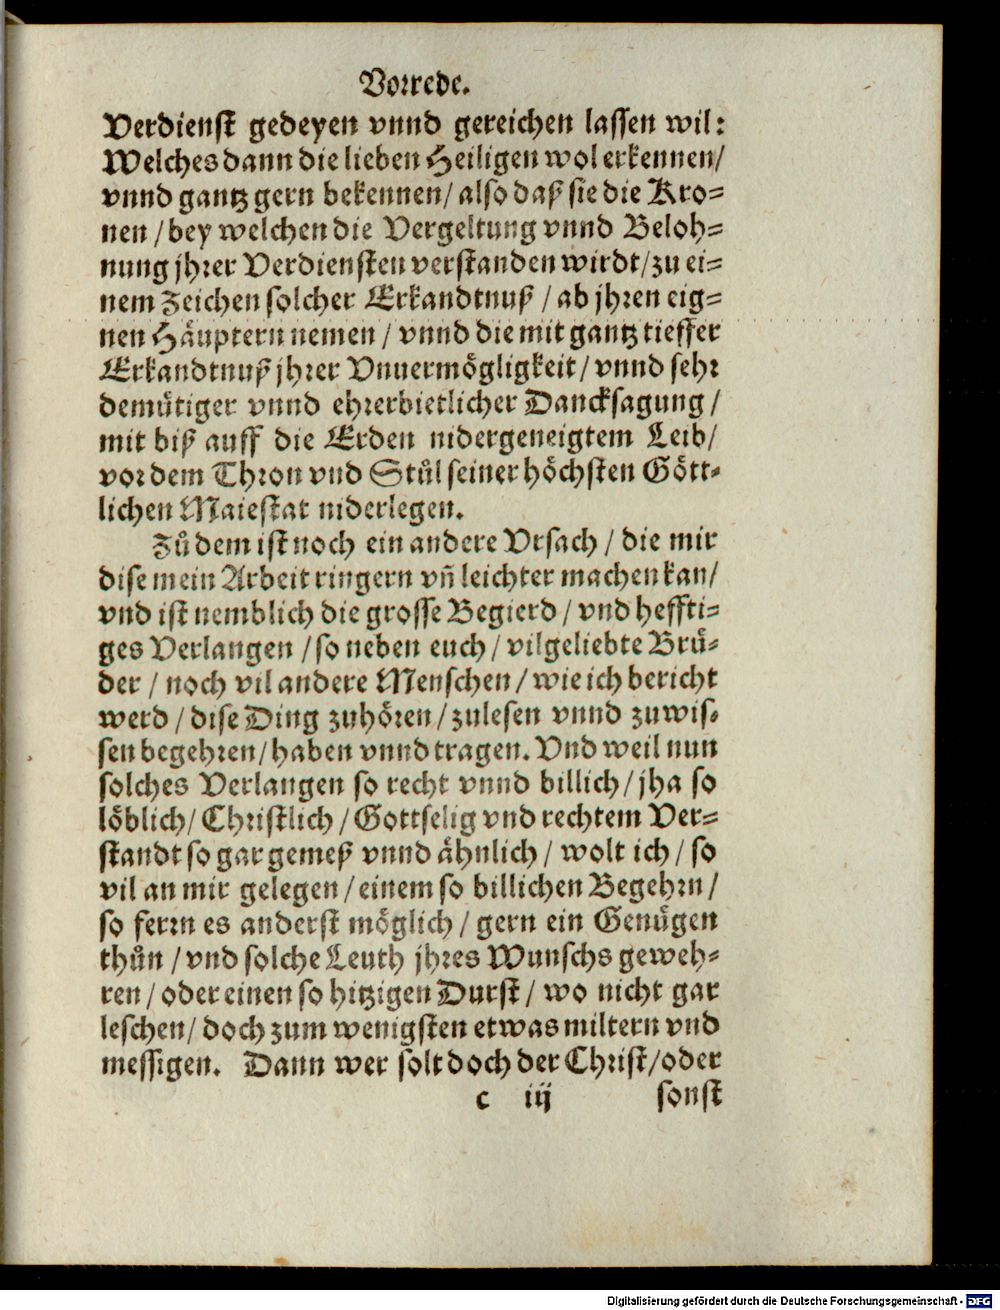 Vorrede.
Verdienst gedeyen vnnd gereichen lassen wil:
Welches dann die lieben Heiligen wol erkennen/
vnnd gantz gern bekennen/ also daß sie die Kro-
nen / bey welchen die Vergeltung vnnd Beloh-
nung jhrer Verdiensten verstanden wirdt/ zu ei-
nem Zeichen solcher Erkandtnuß / ab jhren eig-
nen Häuptern nemen / vnnd die mit gantz tieffer
Erkandtnuß jhrer Vnuermögligkeit / vnnd sehr
demütiger vnnd ehrerbietlicher Dancksagung /
mit biß auff die Erden nidergeneigtem Leib/
vor dem Thron vnd Stůl seiner höchsten Gött-
lichen Maiestat niderlegen.
Zů dem ist noch ein andere Vrsach / die mir
dise mein Arbeit ringern vñ leichter machen kan/
vnd ist nemblich die grosse Begierd / vnd heffti-
ges Verlangen / so neben euch / vilgeliebte Brü-
der / noch vil andere Menschen / wie ich bericht
werd / dise Ding zuhören / zulesen vnnd zuwis-
sen begehren/ haben vnnd tragen. Vnd weil nun
solches Verlangen so recht vnnd billich / jha so
löblich/ Christlich / Gottselig vnd rechtem Ver-
standt so gar gemeß vnnd ähnlich / wolt ich / so
vil an mir gelegen / einem so billichen Begehrn /
so ferrn es anderst möglich / gern ein Genügen
thůn / vnd solche Leuth jhres Wunschs geweh-
ren / oder einen so hitzigen Durst / wo nicht gar
leschen/ doch zum wenigsten etwas miltern vnd
messigen. Dann wer solt doch der Christ/ oder
c iij sonst
Digitalisierung gefördert durch die Deutsche Forschungsgemeinschaft - DFG